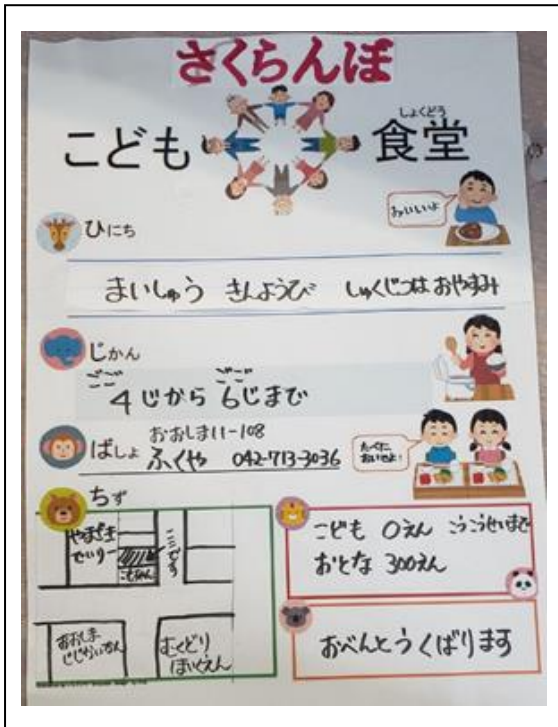 さくらんぼ
こども
しょくどう
食堂
おいしいよ
ひにち
まいしゅう きんようび しゅくじつは おやすみ
じかん
ごご ごご
4じから 6じまで
ばしょ
おおしま11-108
ふくや 042-713-3036
たべに
おいでよ!
ちず
やまざき
でいりー
ここです
こもれび
おおしま
じちかいかん
むくどり
ほいくえん
こども 0えん こうこうせいまで
おとな 300えん
おべんとうくばります